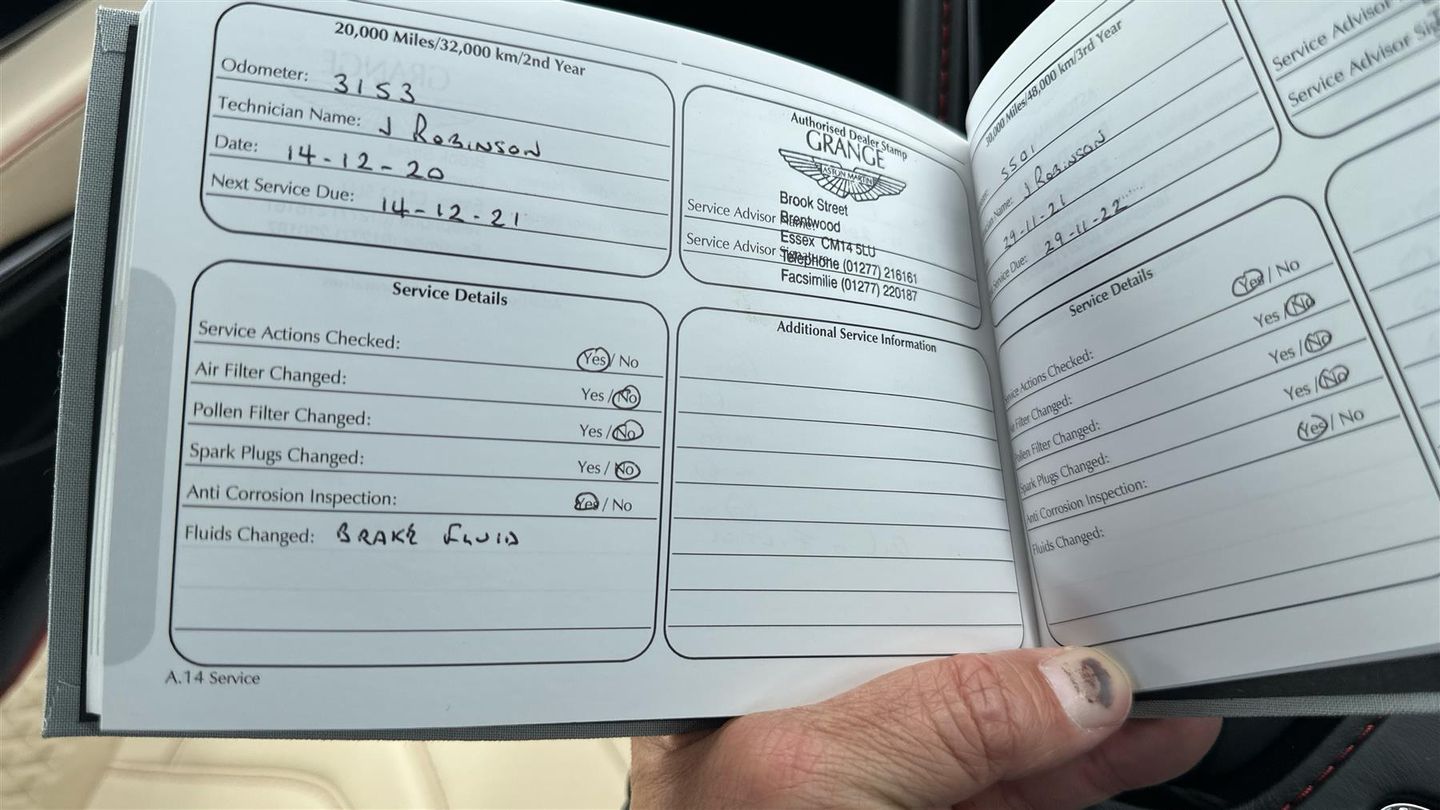 20,000 Miles/32,000 km/2nd Year
Odometer: 3153
Technician Name: J ROBINSON
Date: 14-12-20
Next Service Due: 14-12-21
Authorised Dealer Stamp
GRANGE
ASTON MARTIN
Brook Street
Service Advisor Name:
Brentwood
Essex CM14 5LU
Service Advisor Signature:
Telephone (01277) 216161
Facsimilie (01277) 220187
Service Details
Service Actions Checked: Yes / No
Air Filter Changed: Yes / No
Pollen Filter Changed: Yes / No
Spark Plugs Changed: Yes / No
Anti Corrosion Inspection: Yes / No
Fluids Changed: BRAKE FLUID
Additional Service Information
A.14 Service
30,000 Miles/48,000 km/3rd Year
5501
Name: J ROBINSON
29-11-21
Service Due: 29-11-22
Service Details
Actions Checked: Yes / No
Filter Changed: Yes / No
Pollen Filter Changed: Yes / No
Spark Plugs Changed: Yes / No
Anti Corrosion Inspection: Yes / No
Fluids Changed:
Service Advisor
Service Advisor